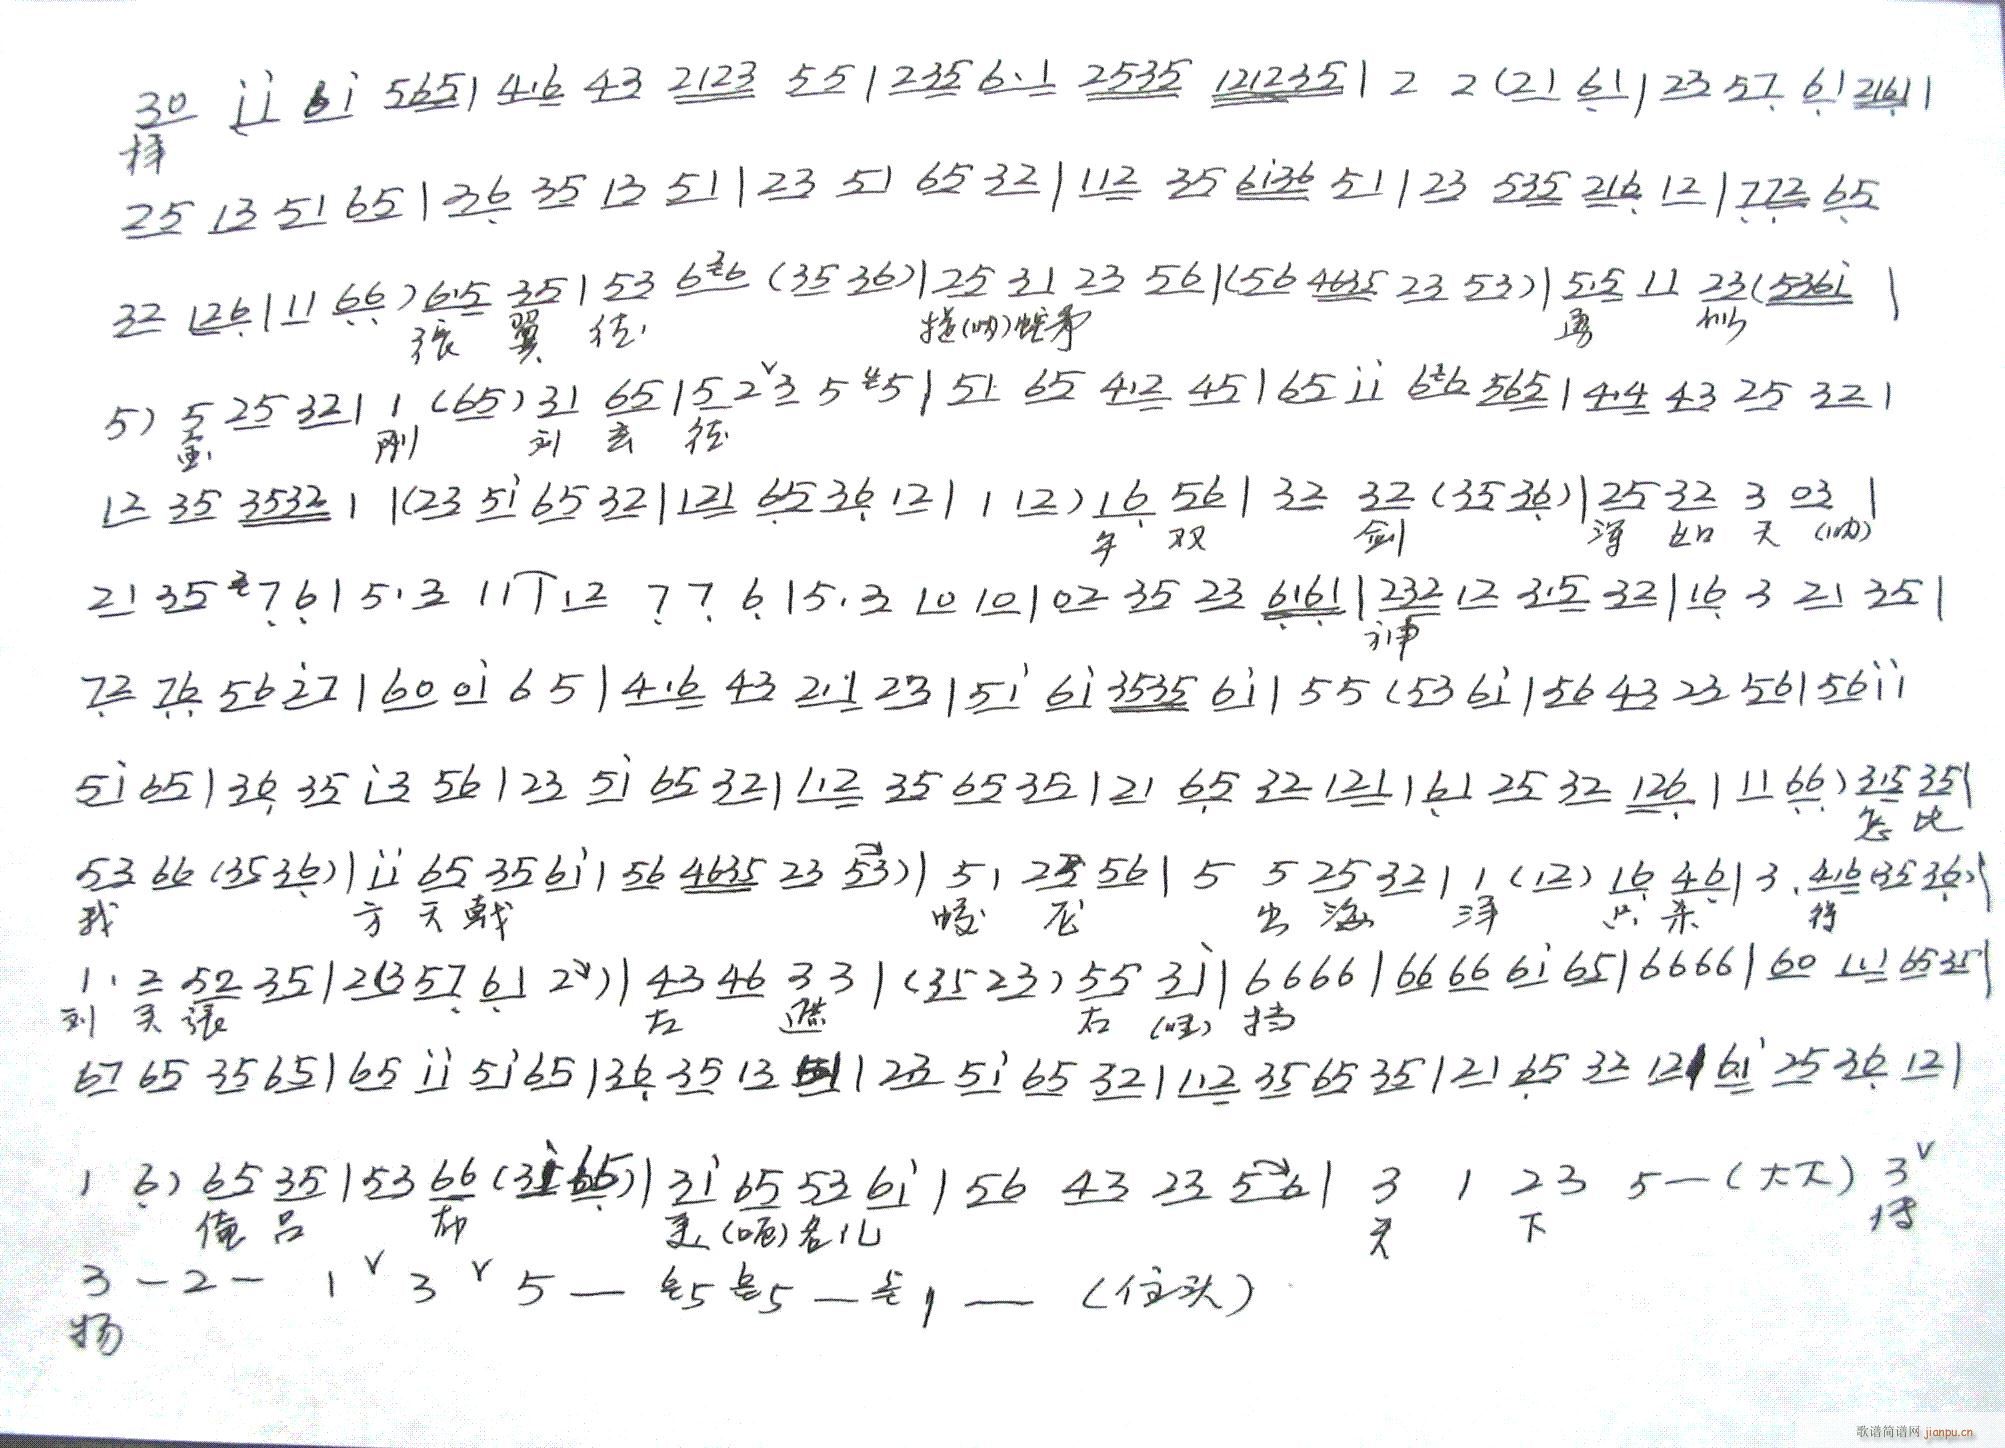 30 ii 6i 565| 4.6 43 2123 55 | 235 6.1 2535 121235 | 2 2 (21 61 | 23 57 61 2161 |
择
25 13 51 65 | 36 35 13 51 | 23 51 65 32 | 112 35 6i36 51 | 23 535 216 12 | 772 65
32 126 | 11 66 ) 6.5 35 | 53 6 6 (35 36) | 25 31 23 56 | (56 4635 23 53) | 5.5 11 23 (536i |
张 翼 德 (呐)蛇矛 勇 似
5) 5 25 32 | 1 (65) 31 65 | 5 2 3 5 5 | 51 65 4.2 45 | 65 ii 6 6 565 | 4.4 43 25 32 |
金 刚 刘 玄 德
12 35 3532 1 | (23 5i 65 32 | 121 65 36 12 | 1 12 ) 16 56 | 32 32 (35 36) | 25 32 3 03 |
双 剑 浑 如 天 (呐)
21 35 7 6 | 5.3 11 12 7 7 6 | 5.3 10 10 | 02 35 23 6161 | 232 12 3.5 32 | 16 3 21 35 |
神
72 76 56 27 | 60 0i 65 | 4.6 43 2.1 23 | 5i 6i 3535 6i | 55 (53 6i | 56 43 23 56 | 56 ii
5i 65 | 36 35 i3 56 | 23 5i 65 32 | 1.2 35 65 35 | 21 65 32 121 | 61 25 32 126 | 11 66 ) 3.5 35 |
怎 比
53 66 (35 36) | ii 65 35 6i | 56 4635 23 53) | 51 23 56 | 5 5 25 32 | 1 (12) 16 46 | 3. 4.6 (35 36) |
我 方 天 戟 蛟 龙 出 海 洋 只 杀 得
1. 2 52 35 | 2(3 57 61 2 ) | 43 46 3 3 | (35 23) 55 3i | 6666 | 66 66 6i 65 | 6666 | 60 111 6535 |
刘 关 张 左 遮 右 (哇) 挡
67 65 35 65 | 65 ii 5i 65 | 36 35 13 51 | 23 5i 65 32 | 1.2 35 65 35 | 21 65 32 12 | 6i 25 36 12 |
1 6) 65 35 | 53 66 (3i 65) | 3i 65 53 6i | 56 43 23 56 | 3 1 23 5 — (大大) 3
俺 吕 布 美 (呃) 名儿 天 下 传
3 — 2 — 1 3 5 — 5 5 — 1 — (住头)
扬
歌谱简谱网 jianpu.cn